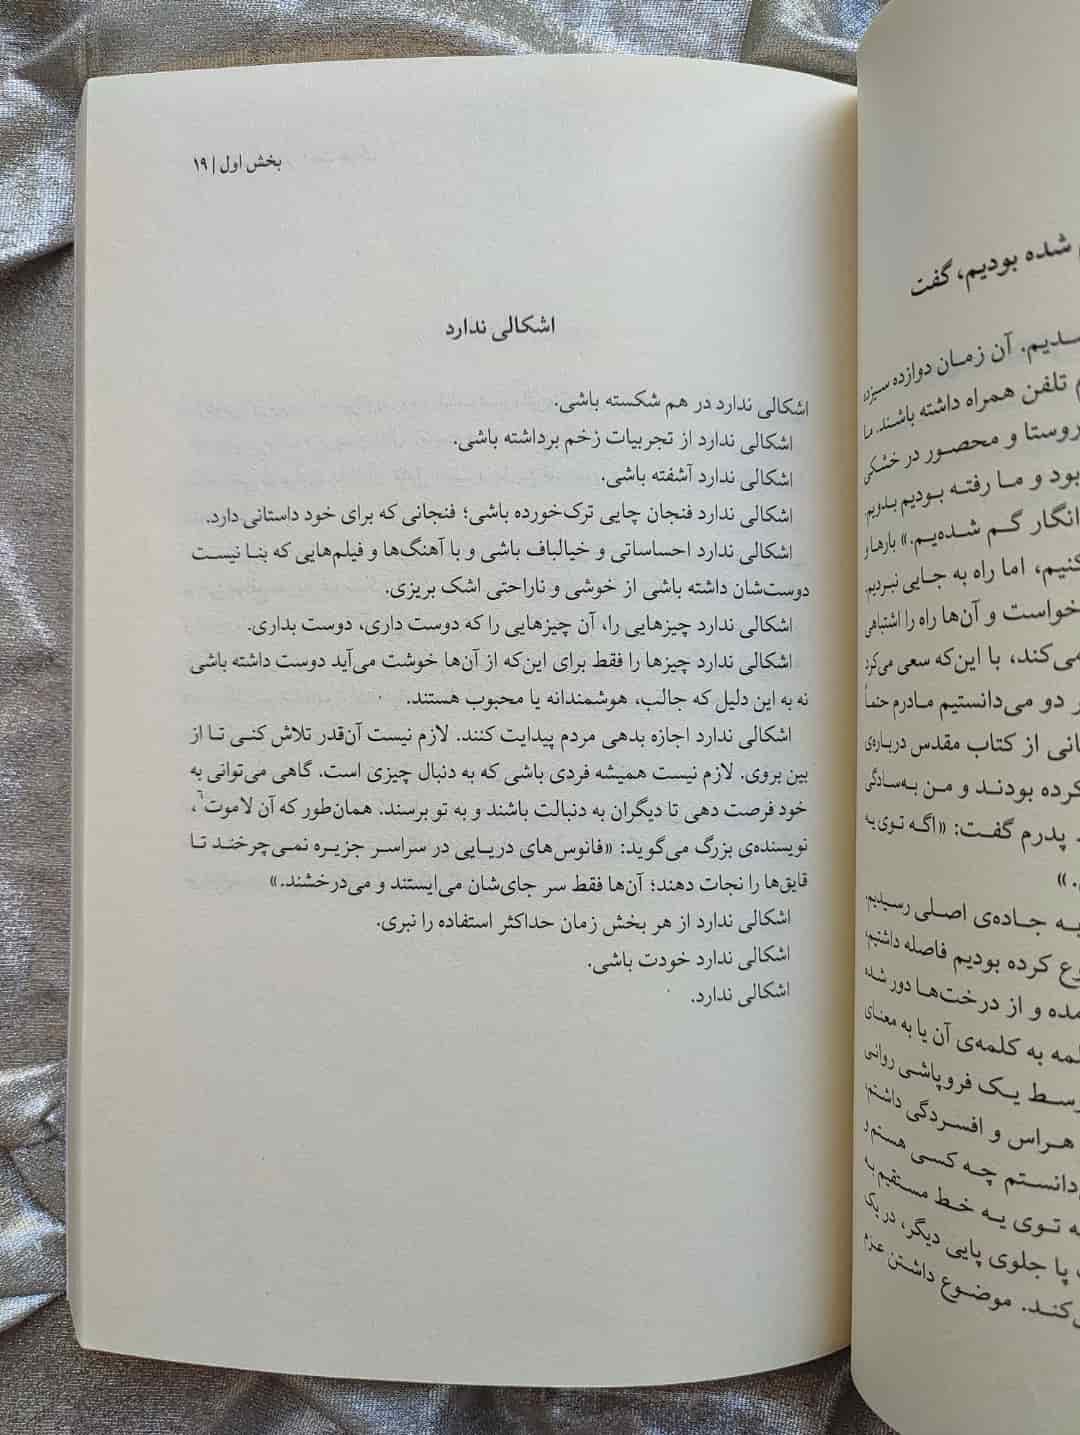 بخش اول | ۱۹
اشکالی ندارد
اشکالی ندارد در هم شکسته باشی.
اشکالی ندارد از تجربیات زخم برداشته باشی.
اشکالی ندارد آشفته باشی.
اشکالی ندارد فنجان چایی ترک‌خورده باشی؛ فنجانی که برای خود داستانی دارد.
اشکالی ندارد احساساتی و خیالباف باشی و با آهنگ‌ها و فیلم‌هایی که بنا نیست
دوست‌شان داشته باشی از خوشی و ناراحتی اشک بریزی.
اشکالی ندارد چیزهایی را، آن چیزهایی را که دوست داری، دوست بداری.
اشکالی ندارد چیزها را فقط برای این‌که از آن‌ها خوشت می‌آید دوست داشته باشی
نه به این دلیل که جالب، هوشمندانه یا محبوب هستند.
اشکالی ندارد اجازه بدهی مردم پیدایت کنند. لازم نیست آن‌قدر تلاش کنی تا از
بین بروی. لازم نیست همیشه فردی باشی که به دنبال چیزی است. گاهی می‌توانی به
خود فرصت دهی تا دیگران به دنبالت باشند و به تو برسند. همان‌طور که آن لاموت۶،
نویسنده‌ی بزرگ می‌گوید: «فانوس‌های دریایی در سراسر جزیره نمی‌چرخند تا
قایق‌ها را نجات دهند؛ آن‌ها فقط سر جای‌شان می‌ایستند و می‌درخشند.»
اشکالی ندارد از هر بخش زمان حداکثر استفاده را نبری.
اشکالی ندارد خودت باشی.
اشکالی ندارد.
شده بودیم، گفت
آن زمان دوازده سیزده
تلفن همراه داشته باشند. ما
روستا و محصور در خشکی
بود و ما رفته بودیم بدویم.
انگار گم شده‌یم.» بارها و
کنیم، اما راه به جایی نبردیم.
خواست و آن‌ها راه را اشتباهی
می‌کند، با این‌که سعی می‌کرد
دو می‌دانستیم مادرم حتماً
از کتاب مقدس درباره‌ی
کرده بودند و من به‌سادگی
پدرم گفت: «اگه توی یه
به جاده‌ی اصلی رسیدیم.
کرده بودیم فاصله داشتیم،
و از درخت‌ها دور شده
به کلمه‌ی آن یا به معنای
یک فروپاشی روانی
هراس و افسردگی داشتم،
چه کسی هستم و
توی یه خط مستقیم به
پا جلوی پایی دیگر، در یک
موضوع داشتن عزم